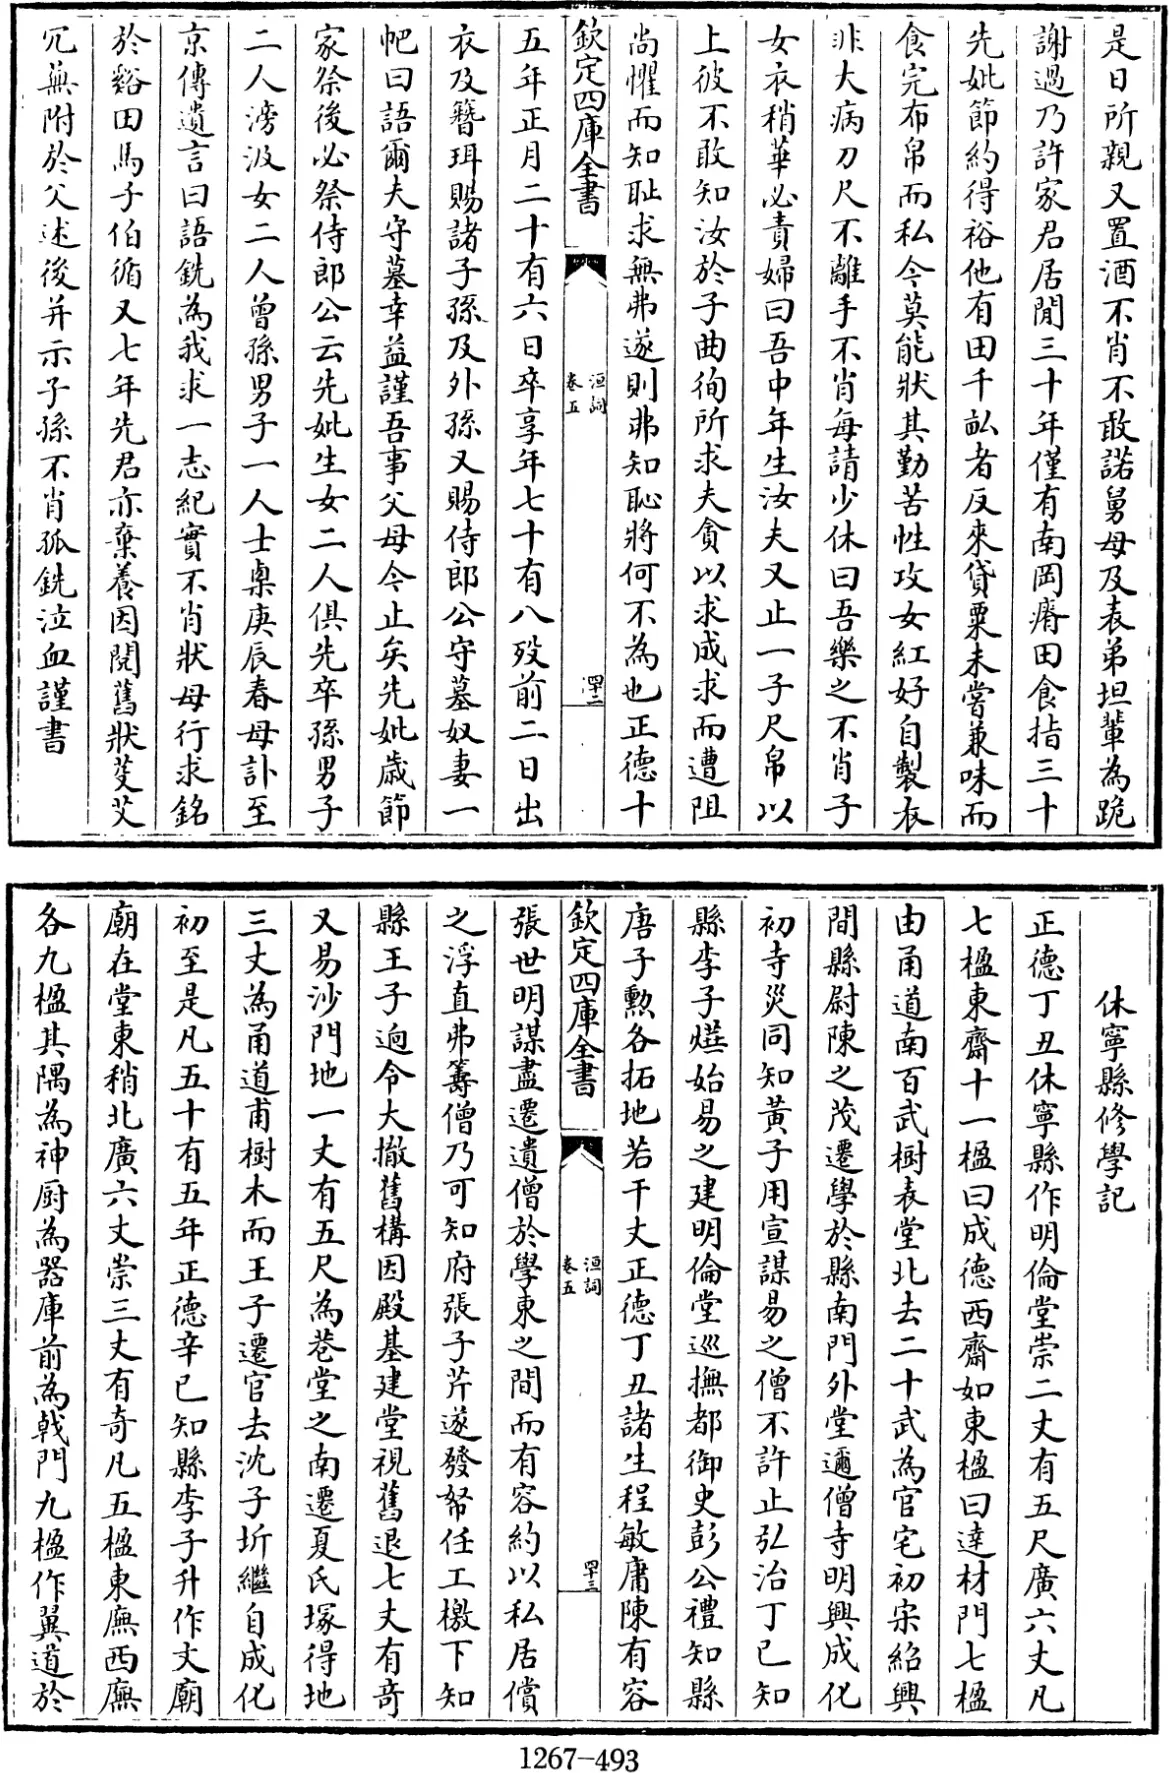 是日所親又置酒不肖不敢諾舅母及表弟坦輩為跪
謝過乃許家君居閒三十年僅有南岡瘠田食指三十
先妣節約得裕他有田千畝者反來貸粟未嘗兼味而
食完布帛而私今莫能狀其勤苦性攻女紅好自製衣
非大病刀尺不離手不肖每請少休曰吾樂之不肖子
女衣稍華必責婦曰吾中年生汝夫又止一子尺帛以
上彼不敢知汝於子曲徇所求夫貪以求成求而遭阻
尚懼而知耻求無弗遂則弗知恥將何不為也正德十
欽定四庫全書
洹詞
卷五
四十二
五年正月二十有六日卒享年七十有八歿前二日出
衣及簪珥賜諸子孫及外孫又賜侍郎公守墓奴妻一
帊曰語爾夫守墓幸益謹吾事父母今止矣先妣歲節
家祭後必祭侍郎公云先妣生女二人俱先卒孫男子
二人滂汲女二人曾孫男子一人士㮚庚辰春母訃至
京傳遺言曰語銑為我求一志紀實不肖狀母行求銘
於谿田馬子伯循又七年先君亦棄養因閱舊狀芟艾
冗蕪附於父述後并示子孫不肖孤銑泣血謹書
休寧縣修學記
正德丁丑休寧縣作明倫堂崇二丈有五尺廣六丈凡
七楹東齋十一楹曰成德西齋如東楹曰達材門七楹
由甬道南百武樹表堂北去二十武為官宅初宋紹興
間縣尉陳之茂遷學於縣南門外堂邇僧寺明興成化
初寺災同知黃子用宣謀易之僧不許止弘治丁巳知
縣李子燁始易之建明倫堂巡撫都御史彭公禮知縣
唐子勲各拓地若干丈正德丁丑諸生程敏庸陳有容
欽定四庫全書
洹詞
卷五
四十三
張世明謀盡遷遺僧於學東之間而有容約以私居償
之浮直弗籌僧乃可知府張子芹遂發帑任工檄下知
縣王子迵令大撤舊構因殿基建堂視舊退七丈有奇
又易沙門地一丈有五尺為巷堂之南遷夏氏塚得地
三丈為甬道甫樹木而王子遷官去沈子圻繼自成化
初至是凡五十有五年正德辛巳知縣李子升作文廟
廟在堂東稍北廣六丈崇三丈有奇凡五楹東廡西廡
各九楹其隅為神厨為器庫前為戟門九楹作翼道於
1267-493